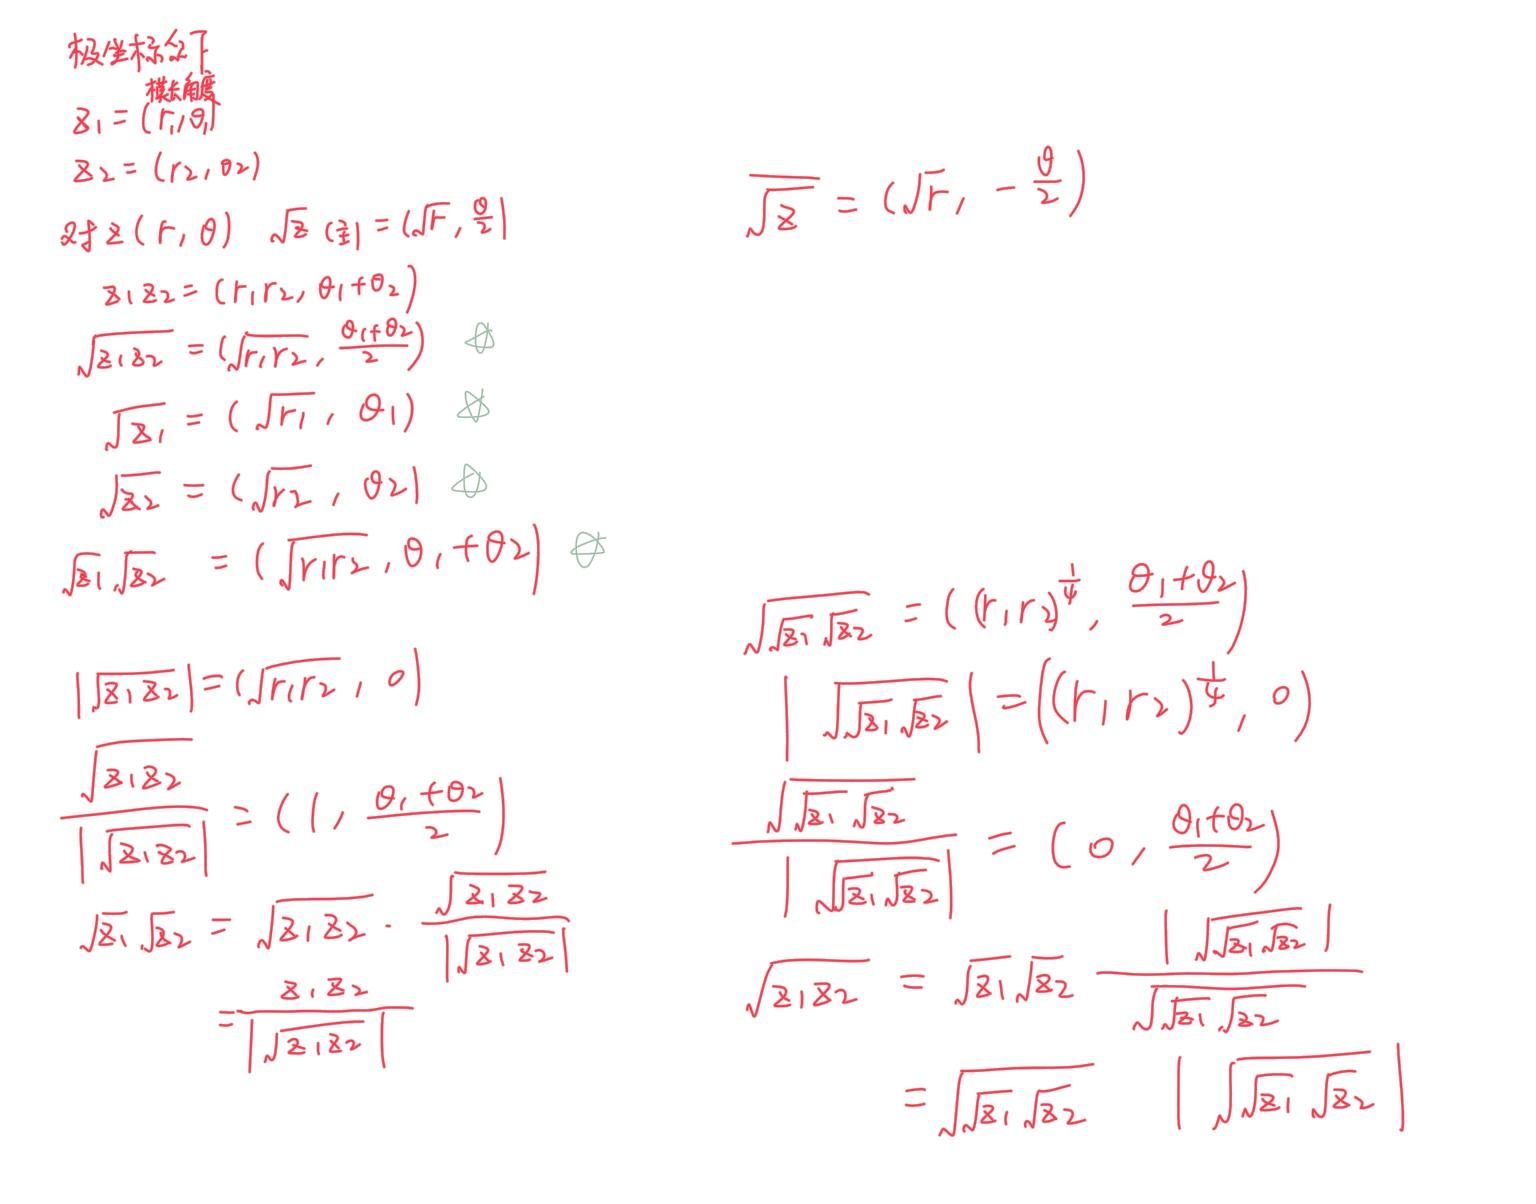 极坐标系下
模长角度
z₁ = (r₁, θ₁)
z₂ = (r₂, θ₂)
对 z(r, θ) √z (主) = (√r, θ/2)
z₁z₂ = (r₁r₂, θ₁+θ₂)
√(z₁z₂) = (√(r₁r₂), (θ₁+θ₂)/2) ☆
√z₁ = (√r₁, θ₁) ☆
√z₂ = (√r₂, θ₂) ☆
√z₁ √z₂ = (√(r₁r₂), θ₁+θ₂) ☆
|√(z₁z₂)| = (√(r₁r₂), 0)
√(z₁z₂) / |√(z₁z₂)| = (1, (θ₁+θ₂)/2)
√z₁ √z₂ = √(z₁z₂) · √(z₁z₂) / |√(z₁z₂)|
= z₁z₂ / |√(z₁z₂)|
‾√z‾ = (√r, -θ/2)
√(√z₁ √z₂) = ((r₁r₂)^(1/4), (θ₁+θ₂)/2)
|√(√z₁ √z₂)| = ((r₁r₂)^(1/4), 0)
√(√z₁ √z₂) / |√(√z₁ √z₂)| = (0, (θ₁+θ₂)/2)
√(z₁z₂) = √z₁ √z₂ |√(√z₁ √z₂)| / √(√z₁ √z₂)
= √(√z₁ √z₂) |√(√z₁ √z₂)|